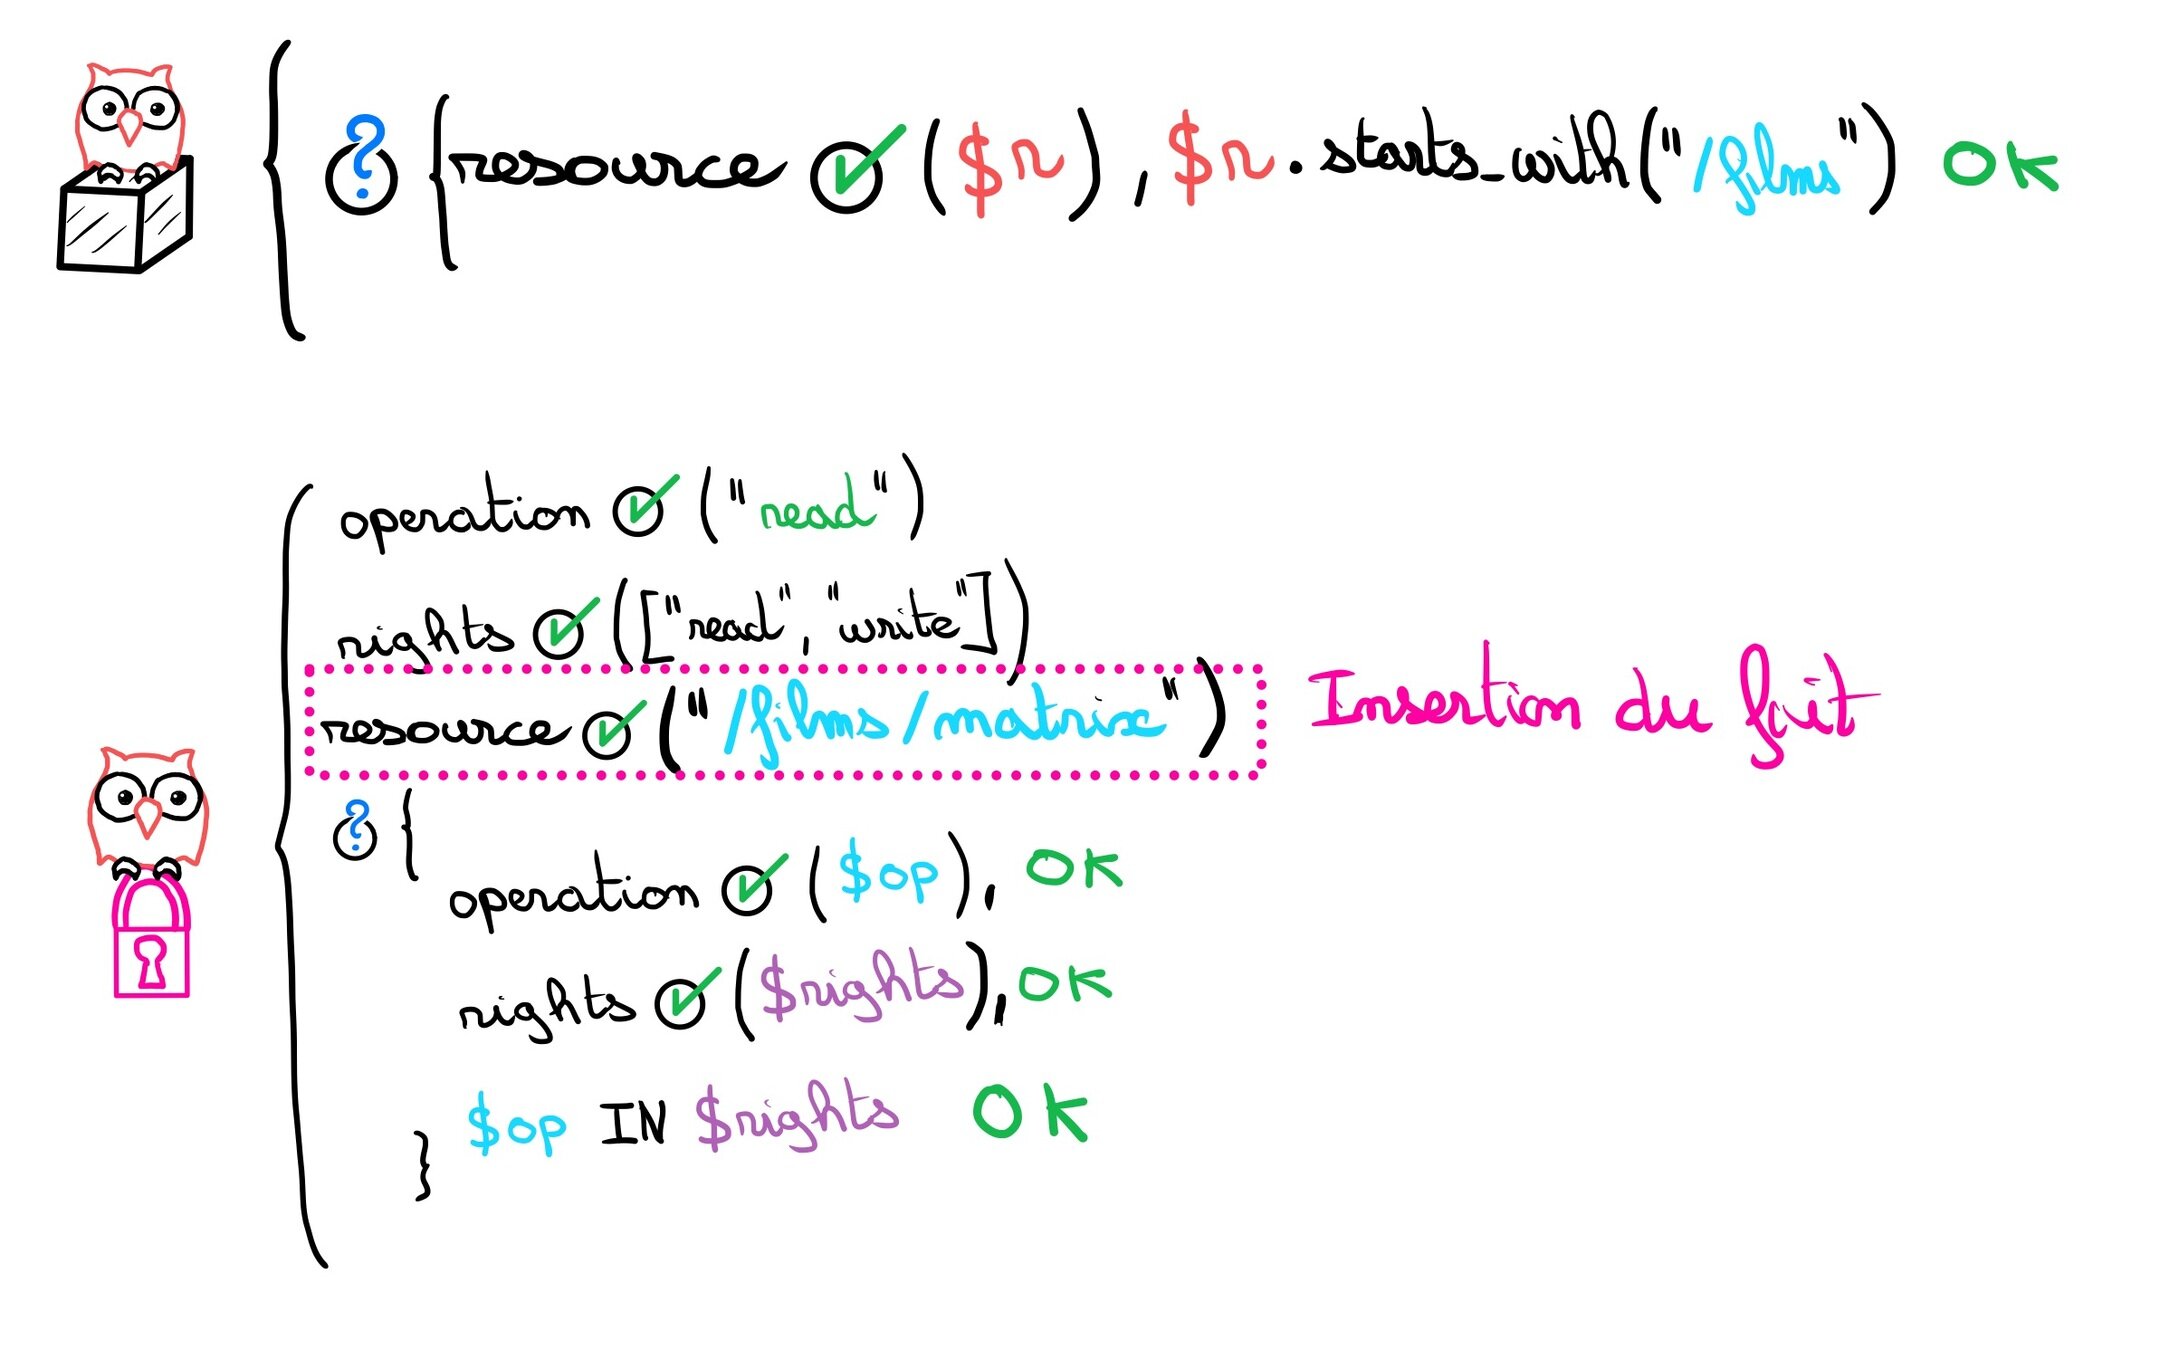 ? { resource ✓ ($r), $r.starts_with("/films") OK
operation ✓ ("read")
rights ✓ (["read", "write"])
resource ✓ ("/films/matrix")
Insertion du fait
? {
operation ✓ ($op), OK
rights ✓ ($rights), OK
$op IN $rights OK
}